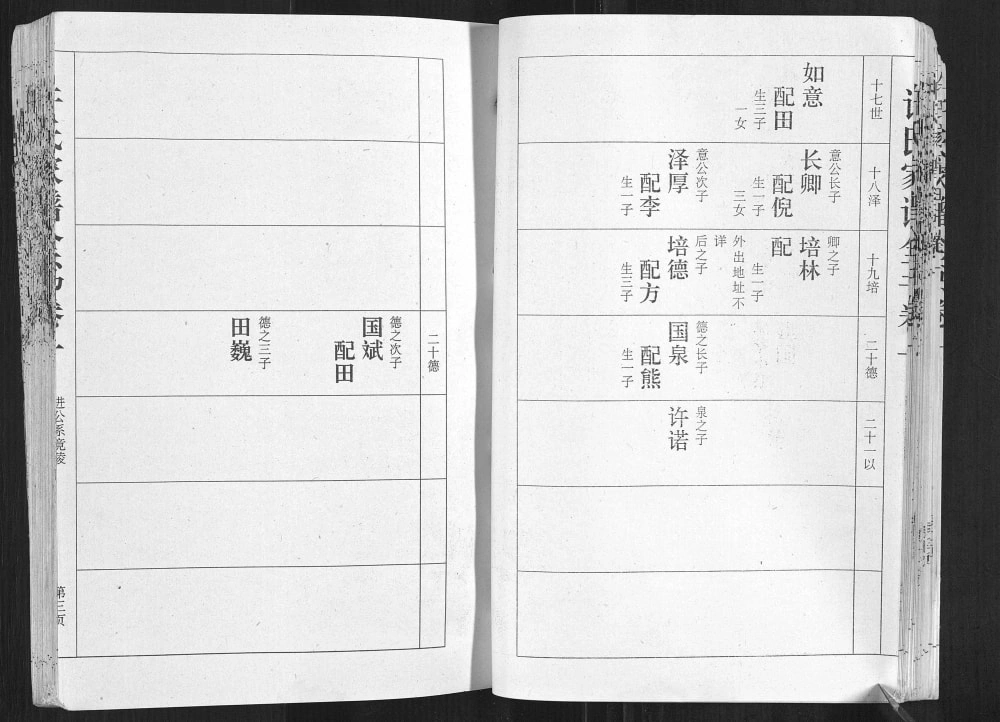 十七世
如意
配田
生三子
一女
十八泽
意公长子
长卿
配倪
生一子
三女
意公次子
泽厚
配李
生一子
十九培
卿之子
培林
配
生一子
外出地址不
详
后之子
培德
配方
生三子
二十德
德之长子
国泉
配熊
生一子
二十一以
泉之子
许诺
二十德
德之次子
国斌
配田
德之三子
田巍
进公系竟陵
第三页